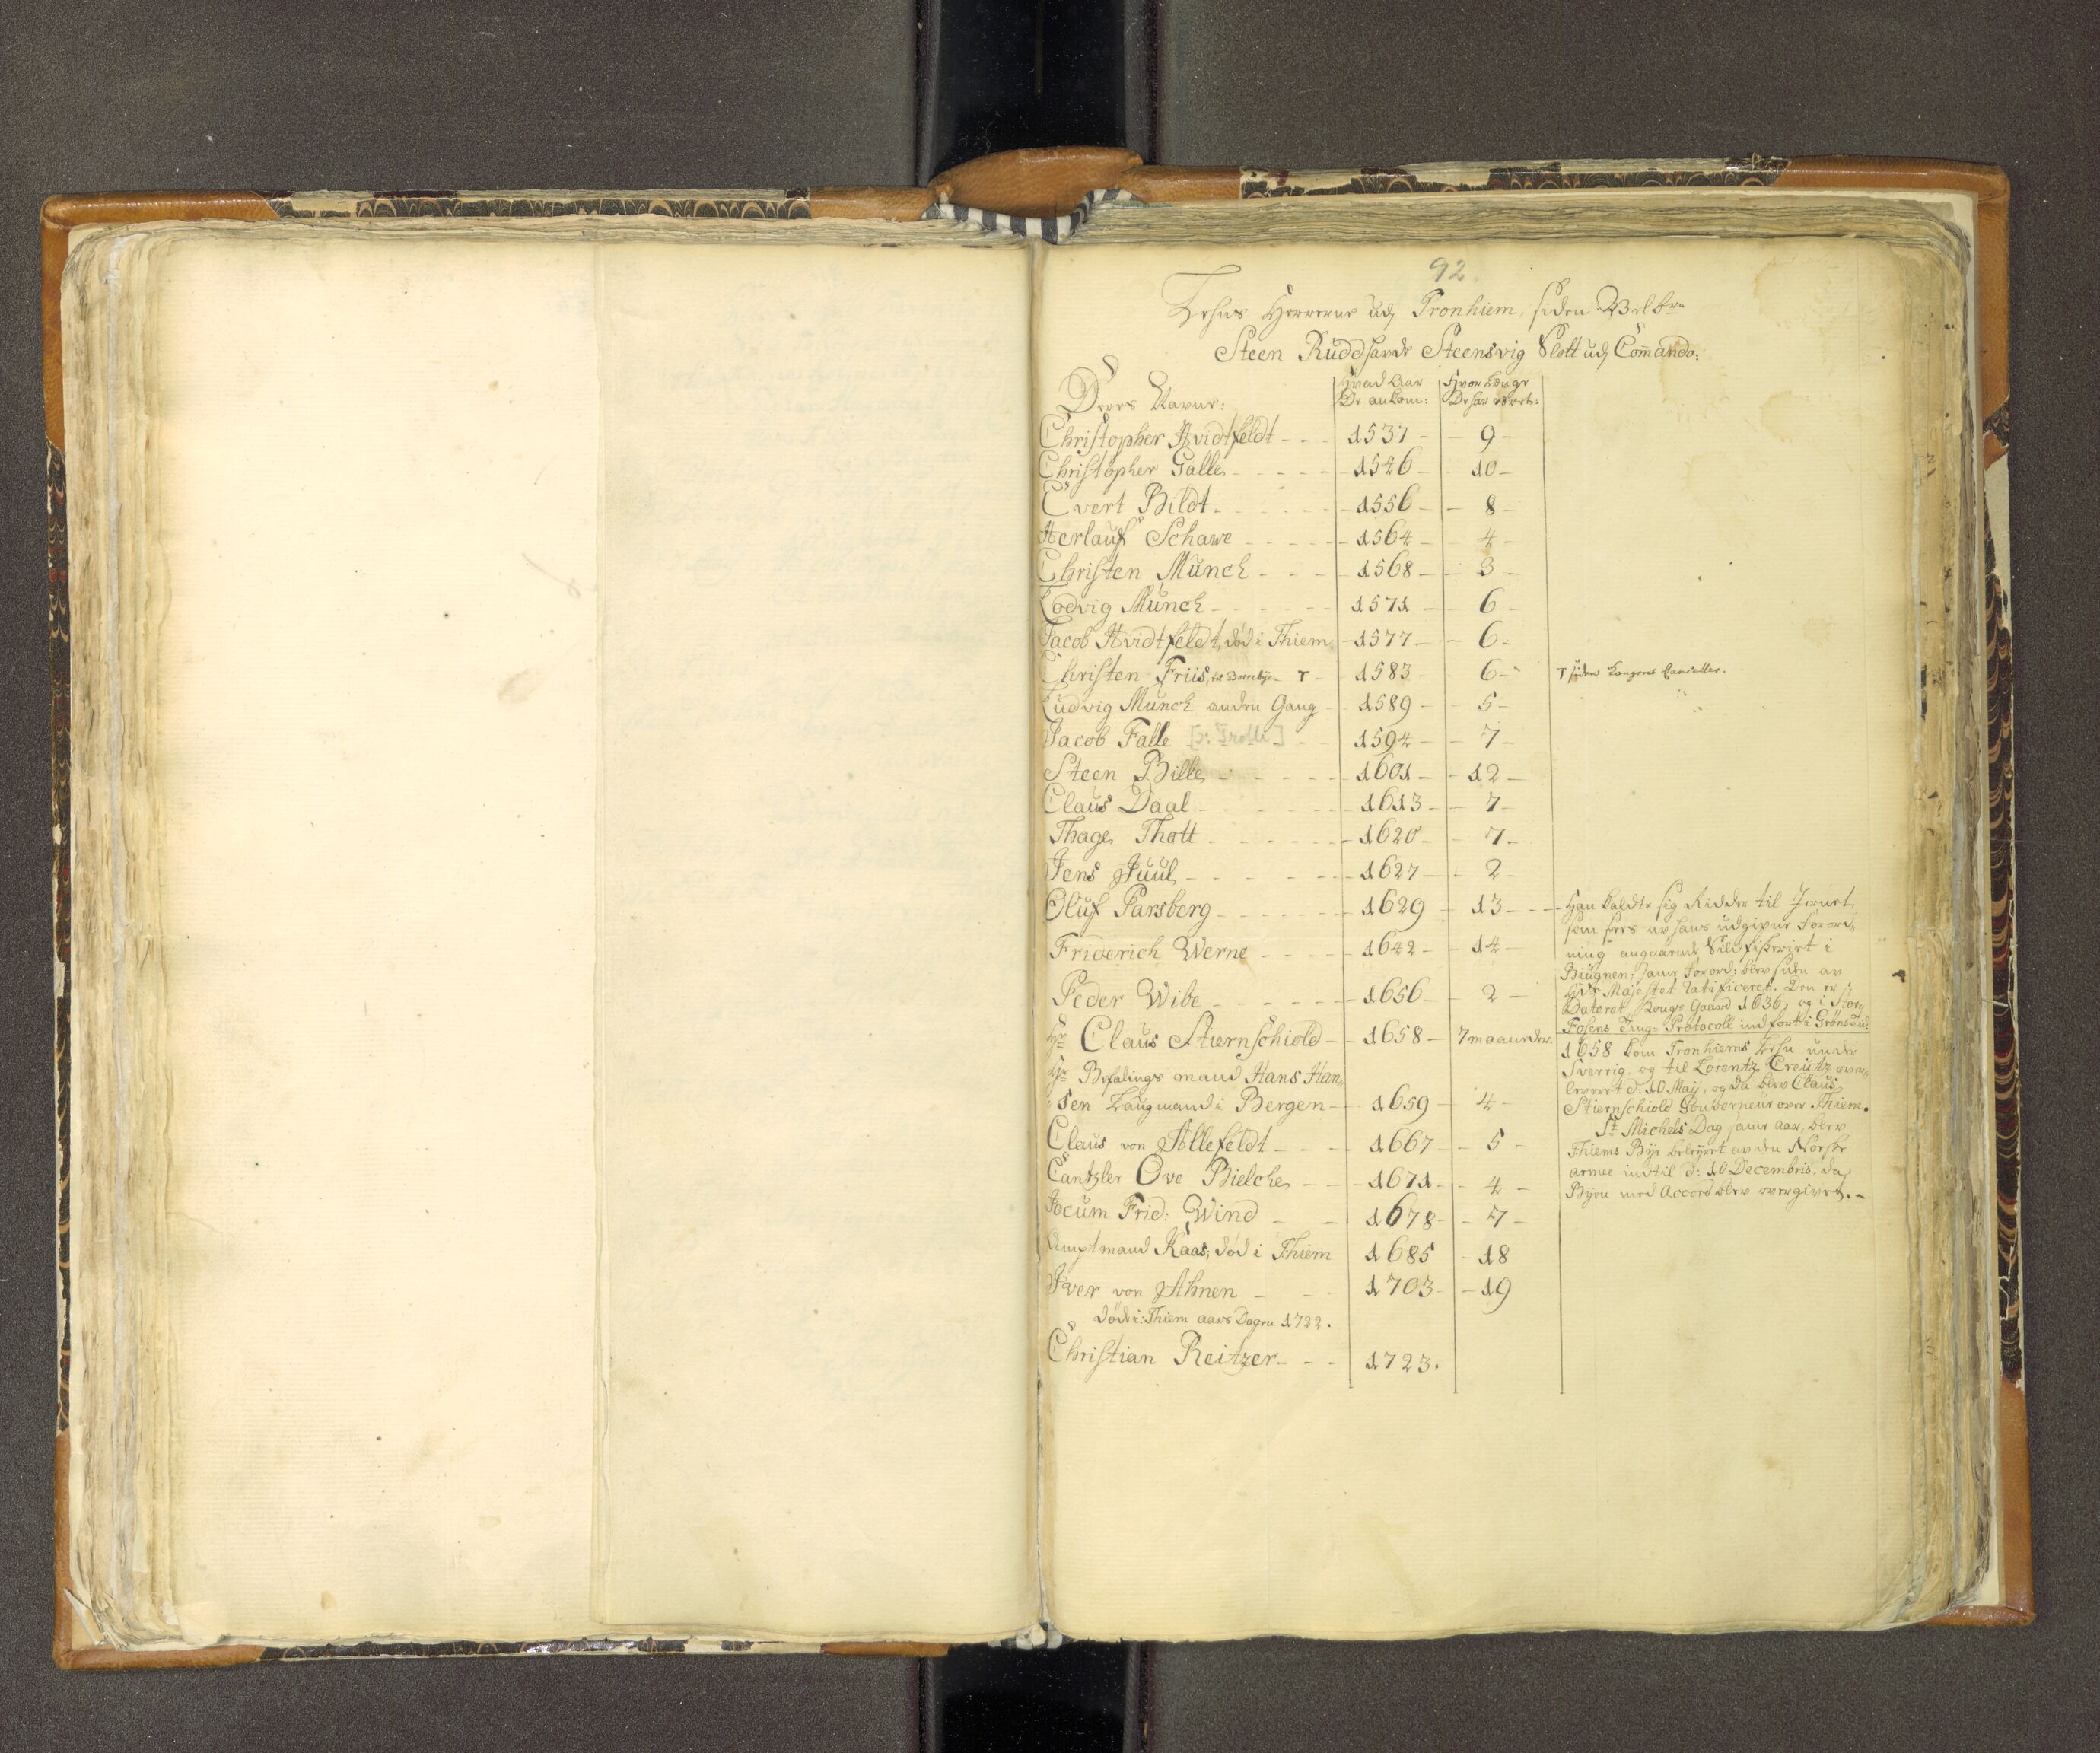 92.
Lehns Herrerne udj Tronhiem, siden Velb:
Steen Rudd havde Steensvig Slott udj Com̄ando:
Deres Navne: Hvad Aar De ankom: Hvor længe De har været:
Christopher Hvidtfeldt - - - 1537 - 9 -
Christopher Galle - - - 1546 - 10 -
Evert Bildt - - - 1556 - 8 -
Herlauf Schawe - - - 1564 - 4 -
Christen Munck - - - 1568 - 3 -
Lodvig Munck - - - 1571 - 6 -
Jacob Hvidtfeldt, död i Thiem, 1577 - 6 -
Christen Friis, til Borrebÿe - T - 1583 - 6 - T siden Kongens Canceller.
Ludvig Munck anden Gang - 1589 - 5 -
Jacob Falle [ɔ: Trolle] - - 1594 - 7 -
Steen Bille - - - 1601 - 12 -
Claus Daal - - - 1613 - 7 -
Thage Thott - - - 1620 - 7 -
Jens Juul - - - 1627 - 2 -
Oluf Parsberg - - - 1629 - 13 - - -
Friderich Werne - - - 1642 - 14 -
Peder Wibe - - - 1656 - 2 -
Hr Claus Stiernschiold - - 1658 - 7 maaneder.
Hr Befalings mand Hans Han
sen Laugmand i Bergen - 1659 - 4 -
Claus von Allefeldt - - - 1667 - 5 -
Cantzler Ove Bielche - - 1671 - 4 -
Jocum Frid: Wind - - 1678 - 7 -
Amptmand Kaas, död i Thiem 1685 - 18
Iver von Ahnen - - - 1703 - 19
döde i Thiem aars Dagen 1722.
Christian Reitzer - - - 1723.
Han kaldte sig Ridder til Jernet,
som sees av hans udgivne Forord,
ning angaaende Silofiskeriet i
Biugnen; samme Forord: blev siden av
Hds Majestet Ratificeret. Den er
Dateret Kongs Gaard 1636, og i Stør
Fosens Ting-Protocoll indfört i Grøns
1658 kom Tronhiems Lehn under
Sverrig, og til Lorentz Creutz over
leveret d: 10 Maij, og da blev Claus
Stiernschiold Gouverneur over Thiem.
St Michels Dag samme aar, blev
Thiems Bÿe beleÿret av den Norske
armee indtil d: 10 Decembris, da
Bÿen med Accord blev overgivet. -